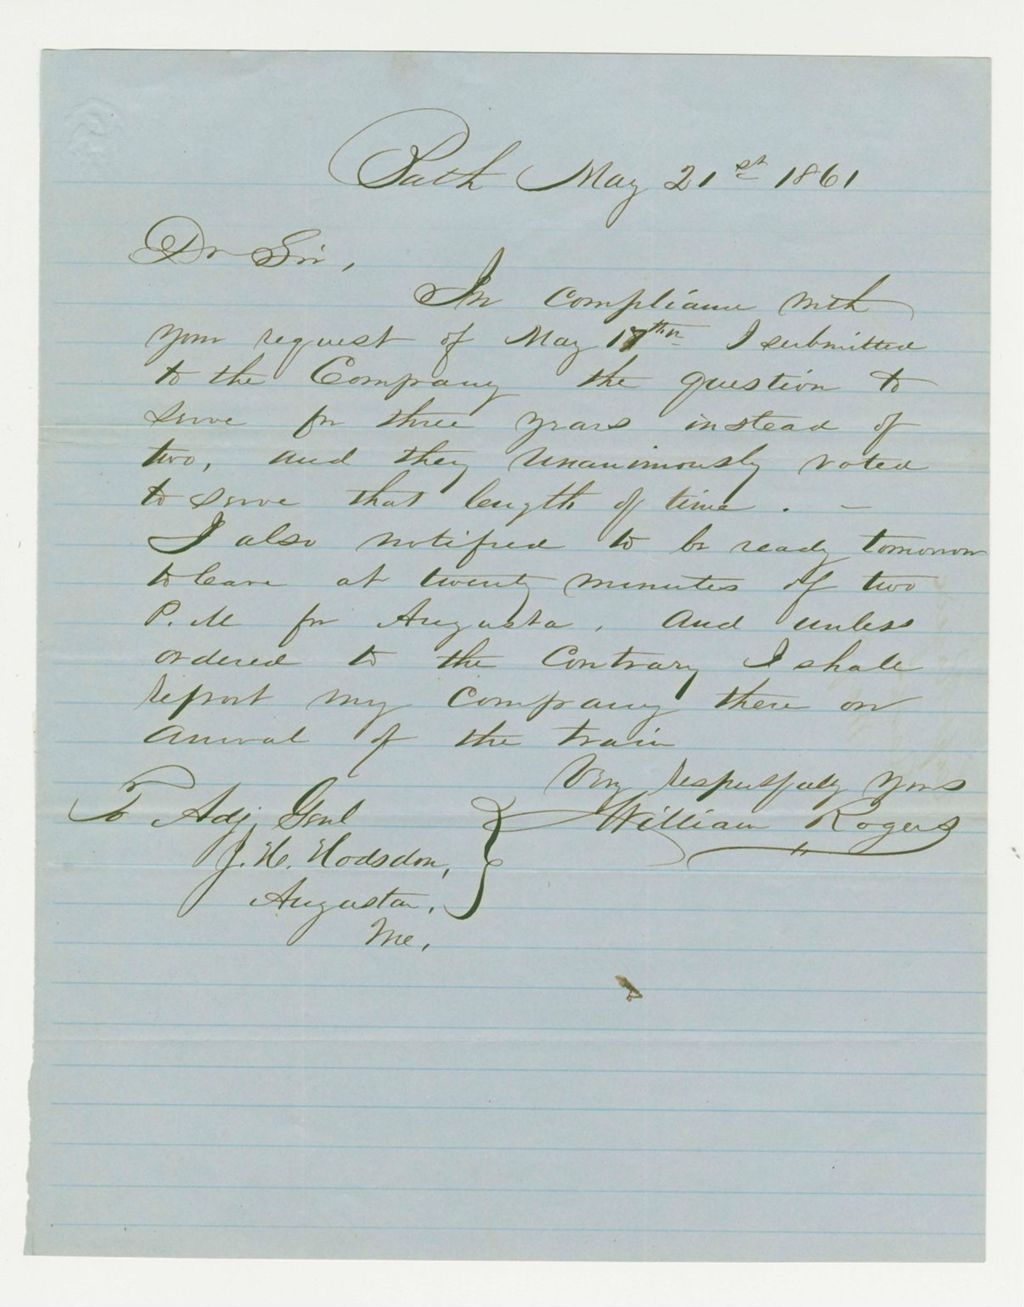 Bath May 21st 1861
Dr Sir,
In compliance with
your request of May 17th I submitted
to the Company the question to
serve for three years instead of
two, and they unanimously voted
to serve that length of time. –
I also notified to be ready tomorrow
to leave at twenty minutes of two
P. M for Augusta. And unless
ordered to the Contrary I shall
report my company there on
arrival of the train
Very Respectfully Yours
William Rogers
To Adj. Genl
J. H. Hodsdon,
Augusta,
Me.